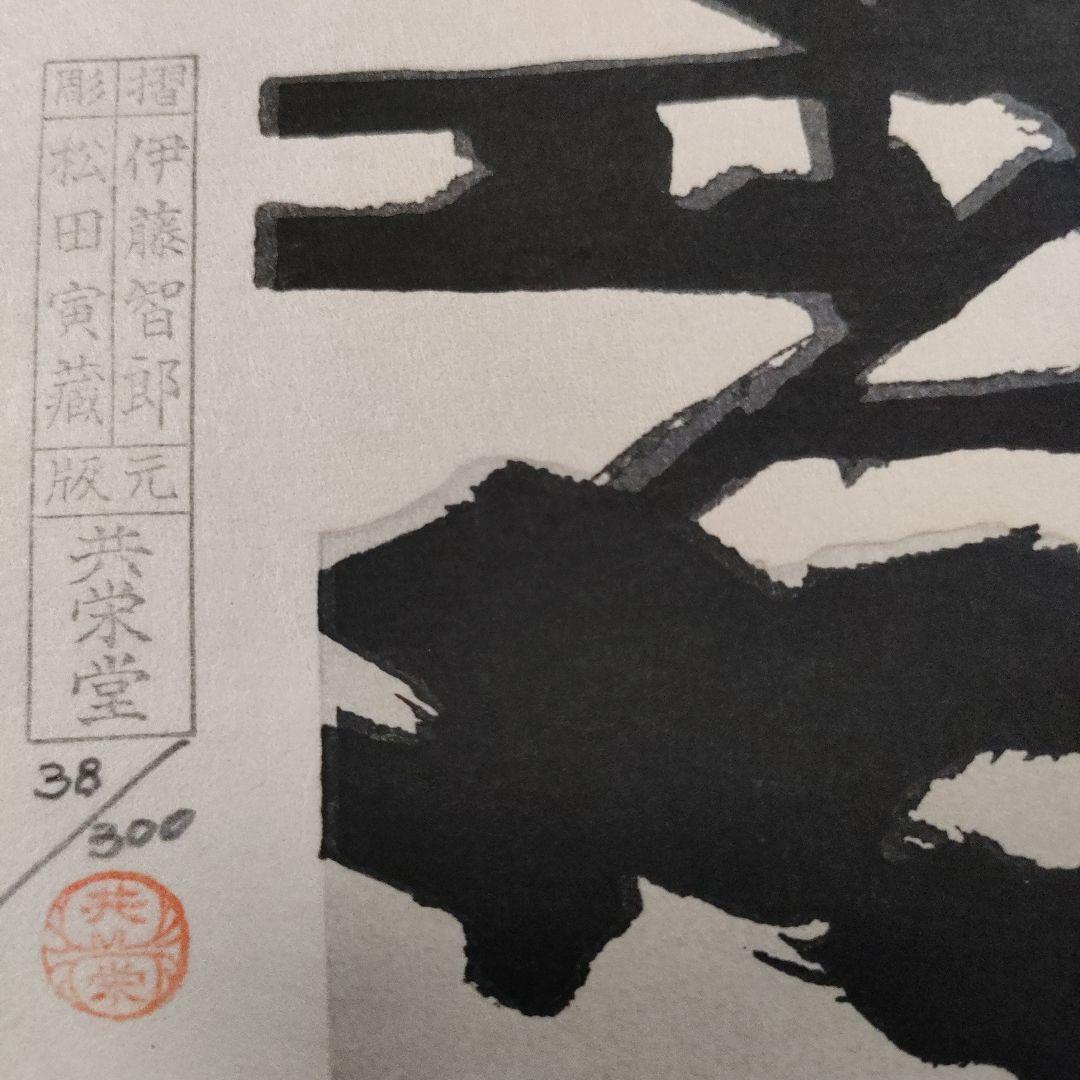 摺 伊藤智郎
彫 松田寅藏
版元
共栄堂
38/300
共栄